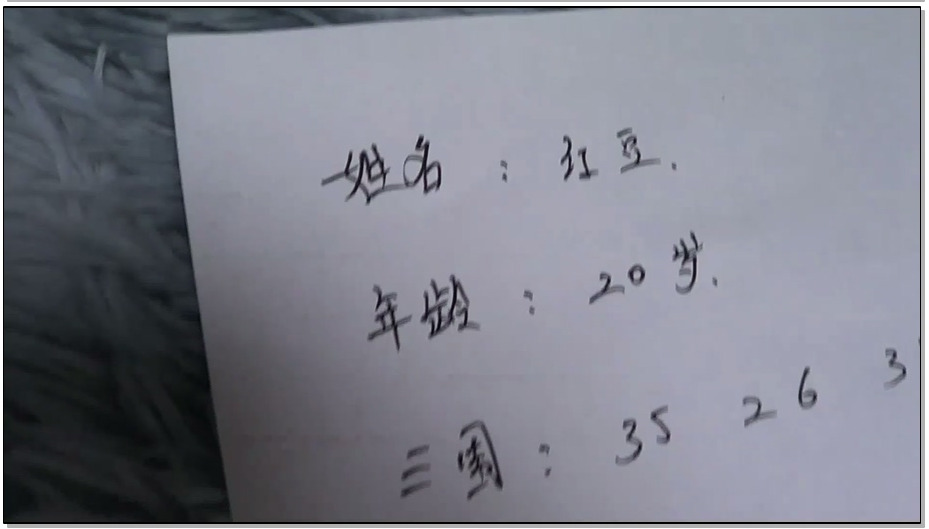 姓名：红豆.
年龄：20岁.
三围：35 26 3